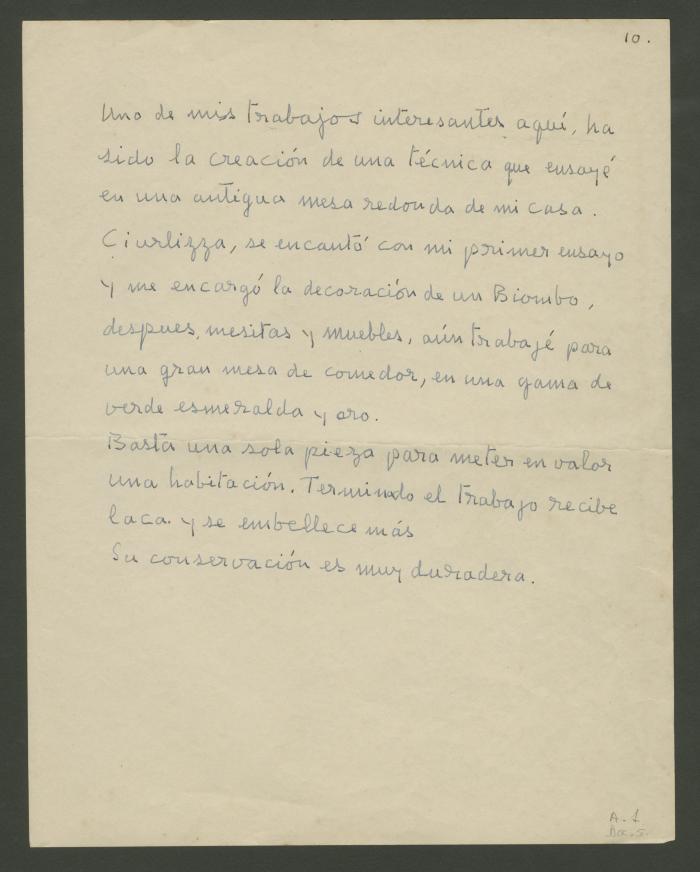 10.
Uno de mis trabajos interesantes aquí, ha
sido la creación de una técnica que ensayé
en una antigua mesa redonda de mi casa.
Ciurlizza, se encantó con mi primer ensayo
y me encargó la decoración de un Biombo,
despues, mesitas y muebles, aún trabajé para
una gran mesa de comedor, en una gama de
verde esmeralda y oro.
Basta una sola pieza para meter en valor
una habitación. Terminado el trabajo recibe
laca y se embellece más
Su conservación es muy duradera.
A-1
Doc. 5.